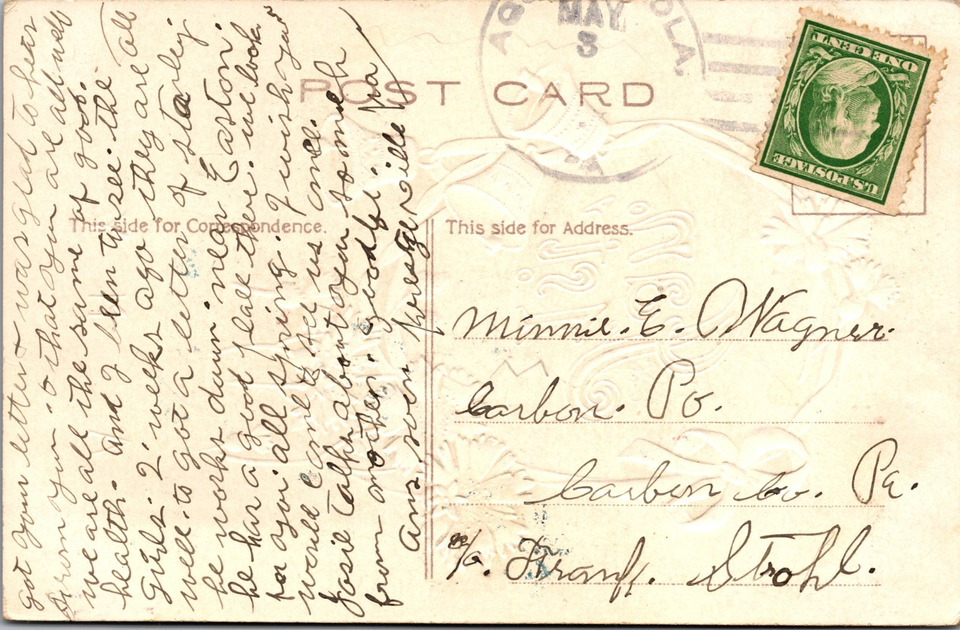 POST CARD
AQUASHICOLA.
MAY
3
PA
ONE CENT
U.S. POSTAGE
This side for Correspondence.
This side for Address.
got your letter was glad to hear
from you. & that you are all well
we are all the same of goot.
health. and I ben to see. the all
Girls. 2. weeks ago they are all
well. to got a letter of Stanley
he works down near Easton.
he has a good place there. we look
for you all spring. I wish you
would come to see us once.
Josie talks about you so much
from mother. goodby.
Ann soon Kresgeville Pa
Minnie. E. Wagner.
Carbon. Po.
Carbon Co. Pa.
c/o. Frank. Strohl.